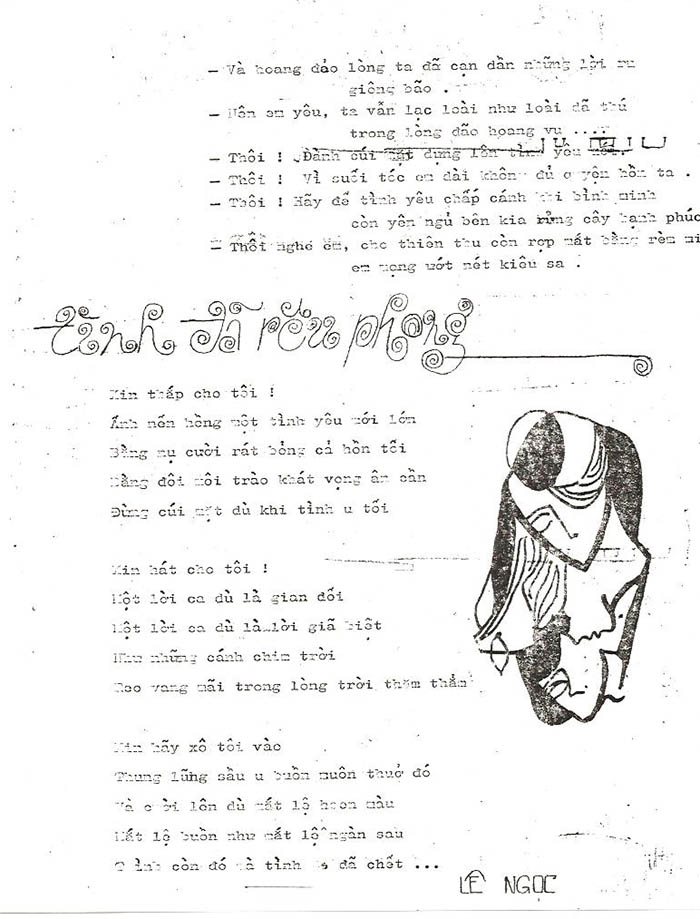 - Và hoang đảo lòng ta đã cạn dần những lời ru
giông bão .
- Nên em yêu, ta vẫn lạc loài như loài dã thú
trong lòng đão hoang vu ....
- Thôi ! Đành cúi mặt dựng lên tình yêu
- Thôi ! Vì suối tóc em dài không đủ quyện hồn ta .
- Thôi ! Hãy để tình yêu chắp cánh khi bình minh
còn yên ngủ bên kia rừng cây hạnh phúc
- Thôi nghé em, cho thiên thu còn rợp mát bằng rèm mi
em mọng ướt nét kiêu sa .
tình đã rêu phong
Xin thắp cho tôi !
Ánh nến hồng một tình yêu mới lớn
Bằng nụ cười rát bỏng cả hồn tôi
Bằng đôi môi trào khát vọng ân cần
Đừng cúi mặt dù khi tình u tối
Xin hát cho tôi !
Một lời ca dù là gian dối
Một lời ca dù là lời giã biệt
Như những cánh chim trời
Reo vang mãi trong lòng trời thăm thẳm
Xin hãy xô tôi vào
Thung lũng sầu u buồn muôn thuở đó
Và cười lên dù mắt lệ hoen màu
Mắt lệ buồn như mắt lệ ngàn sau
còn đó và tình đã chết ...
LÊ NGỌC